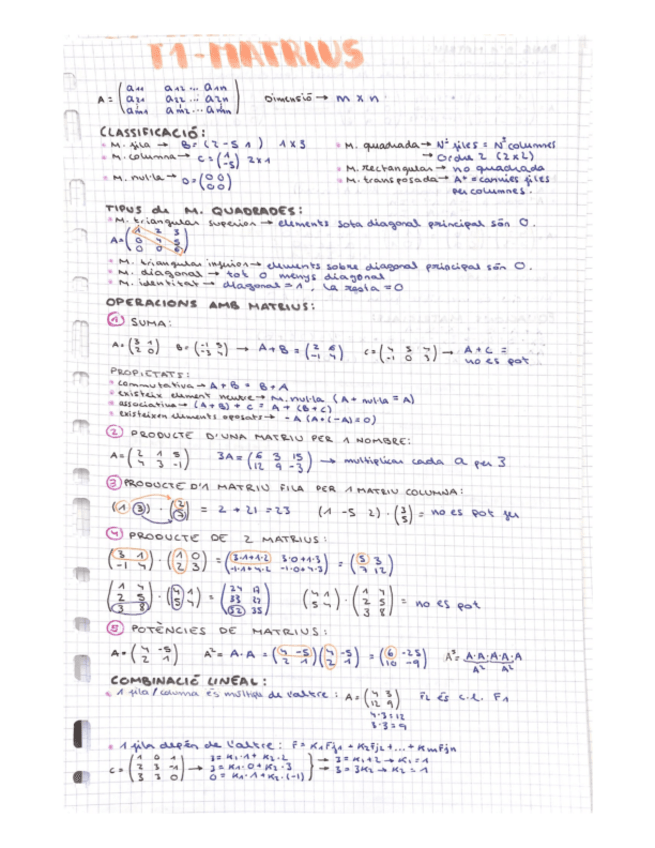 T1-MATRIUS
A = (a11 a12 ... a1n
a21 a22 ... a2n
am1 am2 ... amn) Dimensió → m x n
CLASSIFICACIÓ:
M. fila → B = (2 -5 1) 1x3
M. columna → C = (1
-5) 2x1
M. nul·la → O = (0 0
0 0)
M. quadrada → Nº files = Nº columnes
→ Ordre 2 (2x2)
M. rectangular → no quadrada
M. transposada → canvies files
per columnes.
TIPUS de M. QUADRADES:
M. triangular superior → elements sota diagonal principal són 0.
A = (1 2 3
0 4 5
0 0 6)
M. triangular inferior → elements sobre diagonal principal són 0.
M. diagonal → tot 0 menys diagonal
M. identitat → diagonal = 1, la resta = 0
OPERACIONS AMB MATRIUS:
① SUMA:
A = (3 1
2 0) B = (-1 5
-3 4) → A+B = (2 6
-1 4) C = (4 5 4
-1 0 3) → A+C =
no es pot
PROPIETATS:
commutativa → A+B = B+A
existeix element neutre → M. nul·la (A + nul·la = A)
associativa → (A+B)+C = A+(B+C)
existeixen elements oposats → -A (A+(-A)=0)
② PRODUCTE D'UNA MATRIU PER 1 NOMBRE:
A = (2 1 5
4 3 -1) 3A = (6 3 15
12 9 -3) → multiplicar cada a per 3
③ PRODUCTE D'1 MATRIU FILA PER 1 MATRIU COLUMNA:
(1 3) · (2
7) = 2 + 21 = 23 (1 -5 2) · (3
5) = no es pot fer
④ PRODUCTE DE 2 MATRIUS:
(3 1
-1 4) · (1 0
2 3) = (3·1+1·2 3·0+1·3
-1·1+4·2 -1·0+4·3) = (5 3
7 12)
(1 4
2 5
3 8) · (4 1
5 4) = (24 17
33 22
52 35) (4 1
5 4) · (1 4
2 5
3 8) = no es pot
⑤ POTÈNCIES DE MATRIUS:
A = (4 -5
2 1) A² = A·A = (4 -5
2 1)(4 -5
2 1) = (6 -25
10 -9) A·A·A·A·A
A² A²
COMBINACIÓ LINEAL:
1 fila/columna és múltiple de l'altre: A = (4 3
12 9) F2 és c.l. F1
4·3=12
3·3=9
1 fila depèn de l'altre: F = K1Fj1 + K2Fj2 + ... + KmFjn
C = (1 0 1
2 3 -1
3 3 0) → 3 = K1·1 + K2·2
3 = K1·0 + K2·3
0 = K1·1 + K2·(-1)
→ 3 = K1+2 → K1 = 1
→ 3 = 3K2 → K2 = 1